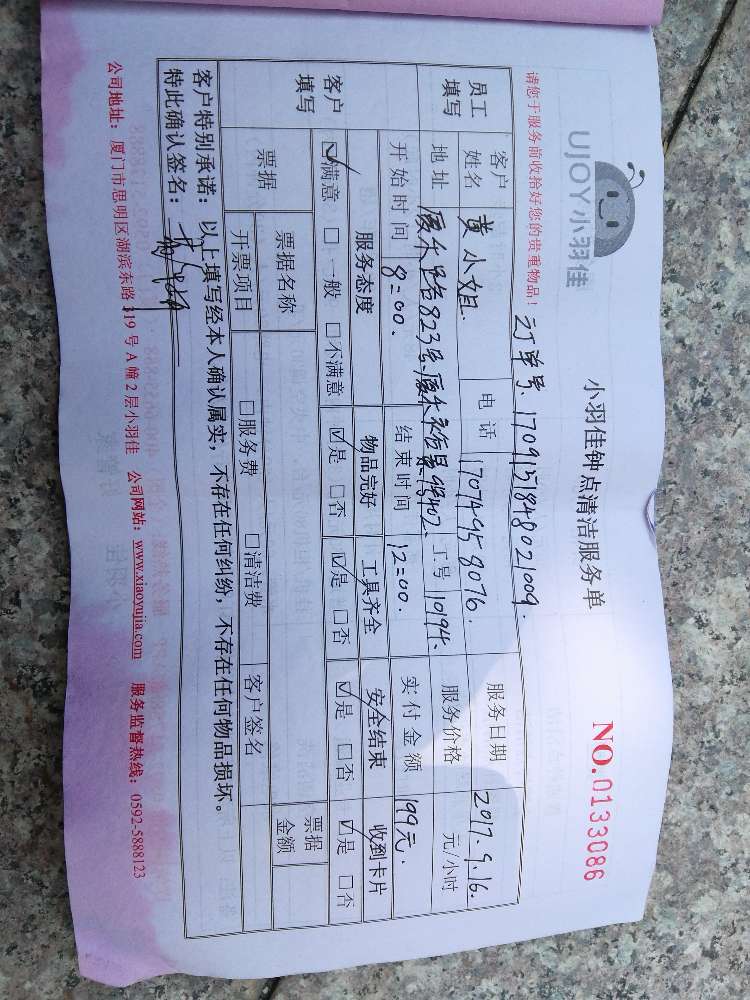 UJOY小羽佳
小羽佳钟点清洁服务单
NO.0133086
请您于服务前收拾好您的贵重物品!
订单号:1709151848021009.
员工填写
客户姓名 黄小姐. 电话 17074958076. 服务日期 2017.9.16.
地址 厦禾路823号厦禾裕景 3402. 工号 10194. 服务价格 元/小时
开始时间 8:00. 结束时间 12:00. 实付金额 199元.
客户填写
服务态度 物品完好 工具齐全 安全结束 收到卡片
☑满意 □一般 □不满意 ☑是 □否 ☑是 □否 ☑是 □否 ☑是 □否
票据 票据名称 票据金额
开票项目 □服务费 □清洁费 客户签名
客户特别承诺:以上填写经本人确认属实,不存在任何纠纷,不存在任何物品损坏。
特此确认签名:
公司地址:厦门市思明区湖滨东路319号A幢2层小羽佳 公司网站:www.xiaoyujia.com 服务监督热线:0592-5888123